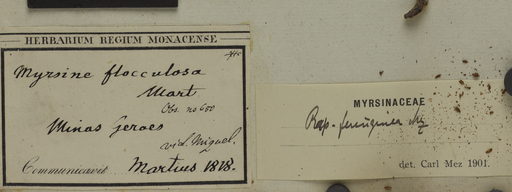 HERBARIUM REGIUM MONACENSE
Myrsine flocculosa
Mart
Obs. no 600
Minas Geraes
vid. Miquel.
Communicavit Martius 1818.
MYRSINACEAE
Rap. ferruginea Mz
det. Carl Mez 1901.